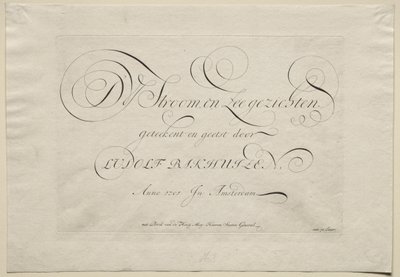 D'Y Stroom en Zee gezichten
Geteekent en geetst door
LUDOLF BAKHUIZEN.
Anno 1701 In Amsterdam
met Privil. van de Hoog Mog. Heeren Staten Generael